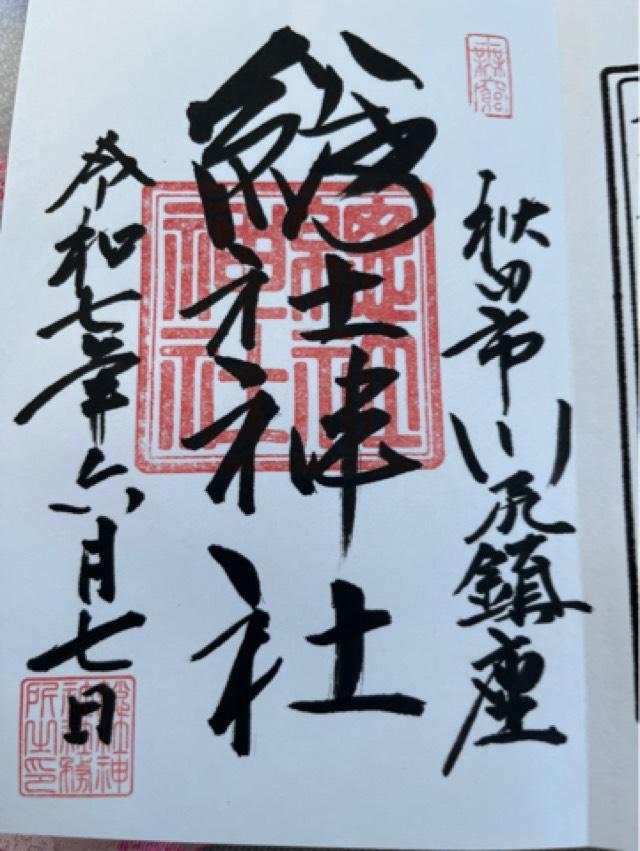 秋田市川尻鎮座
總社神社
總社
神社
令和七年六月七日
總社神
社社務
所之印